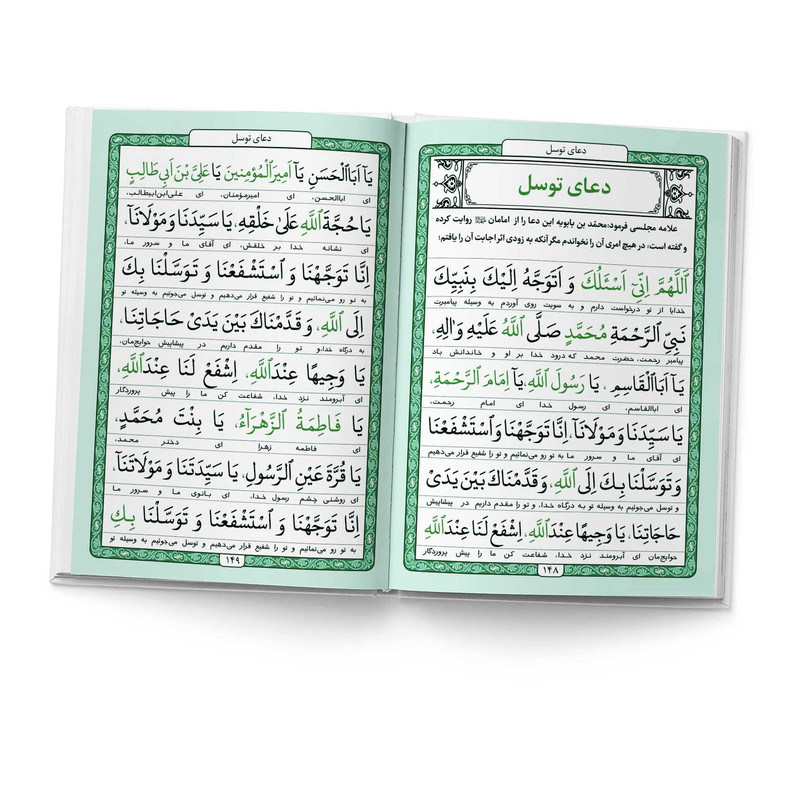 دعای توسل
دعای توسل
علامه مجلسی فرمود:محمّد بن بابویه این دعا را از امامان ﷺ روایت کرده
و گفته است: در هیچ امری آن را نخواندم مگر آنکه به زودی اثر اجابت آن را یافتم:
اَللّٰهُمَّ اِنّیٓ اَسْئَلُكَ وَ اَتَوَجَّهُ اِلَیْكَ بِنَبِیِّكَ
خدایا از تو درخواست دارم و به سویت روی آوردم به وسیله پیامبرت
نَبِیِّ الرَّحْمَةِ مُحَمَّدٍ صَلَّی اللّٰهُ عَلَیْهِ وَاٰلِهِ،
پیامبر رحمت، حضرت محمد که درود خدا بر او و خاندانش باد
یَآ اَبَاالْقَاسِمِ، یَا رَسُولَ اللّٰهِ، یَآ اِمَامَ الرَّحْمَةِ،
ای اباالقاسم، ای رسول خدا ای امام رحمت،
یَا سَیِّدَنَا وَمَوْلَانَآ، اِنَّا تَوَجَّهْنَا وَاسْتَشْفَعْنَا
ای آقای ما و سرور ما به تو رو می‌نمائیم و تو را شفیع قرار می‌دهیم
وَ تَوَسَّلْنَا بِكَ اِلَی اللّٰهِ، وَ قَدَّمْنَاكَ بَیْنَ یَدَیْ
و توسل می‌جوئیم به وسیله تو به درگاه خدا، و تو را مقدم داریم در پیشاپیش
حَاجَاتِنَا، یَا وَجِیهًا عِنْدَ اللّٰهِ، اِشْفَعْ لَنَا عِنْدَ اللّٰهِ
حوایج‌مان ای آبرومند نزد خدا، شفاعت کن ما را پیش پروردگار
۱۴۸
دعای توسل
یَآ اَبَاالْحَسَنِ یَآ اَمِیرَ الْمُؤْمِنِینَ یَا عَلِیَّ بْنَ اَبِی طَالِبٍ
ای اباالحسن، ای امیرمؤمنان، ای علی‌ابن‌ابیطالب،
یَا حُجَّةَ اللّٰهِ عَلیٰ خَلْقِهِ، یَا سَیِّدَنَا وَمَوْلَانَآ،
ای نشانه خدا بر خلقش، ای آقای ما و سرور ما،
اِنَّا تَوَجَّهْنَا وَ اسْتَشْفَعْنَا وَ تَوَسَّلْنَا بِكَ
به تو رو می‌نمائیم و تو را شفیع قرار می‌دهیم و توسل می‌جوئیم به وسیله تو
اِلَی اللّٰهِ، وَ قَدَّمْنَاكَ بَیْنَ یَدَیْ حَاجَاتِنَا،
به درگاه خدا،و تو را مقدم داریم در پیشاپیش حوایج‌مان،
یَا وَجِیهًا عِنْدَ اللّٰهِ، اِشْفَعْ لَنَا عِنْدَ اللّٰهِ،
ای آبرومند نزد خدا، شفاعت کن ما را پیش پروردگار
یَا فَاطِمَةُ الزَّهْرَآءُ، یَا بِنْتَ مُحَمَّدٍ،
ای فاطمه زهرا ای دختر محمد،
یَا قُرَّةَ عَیْنِ الرَّسُولِ، یَا سَیِّدَتَنَا وَ مَوْلَاتَنَآ،
ای روشنی چشم رسول خدا، ای بانوی ما و سرور ما
اِنَّا تَوَجَّهْنَا وَ اسْتَشْفَعْنَا وَ تَوَسَّلْنَا بِكِ
به تو رو می‌نمائیم و تو را شفیع قرار می‌دهیم و توسل می‌جوئیم به وسیله تو
۱۴۹